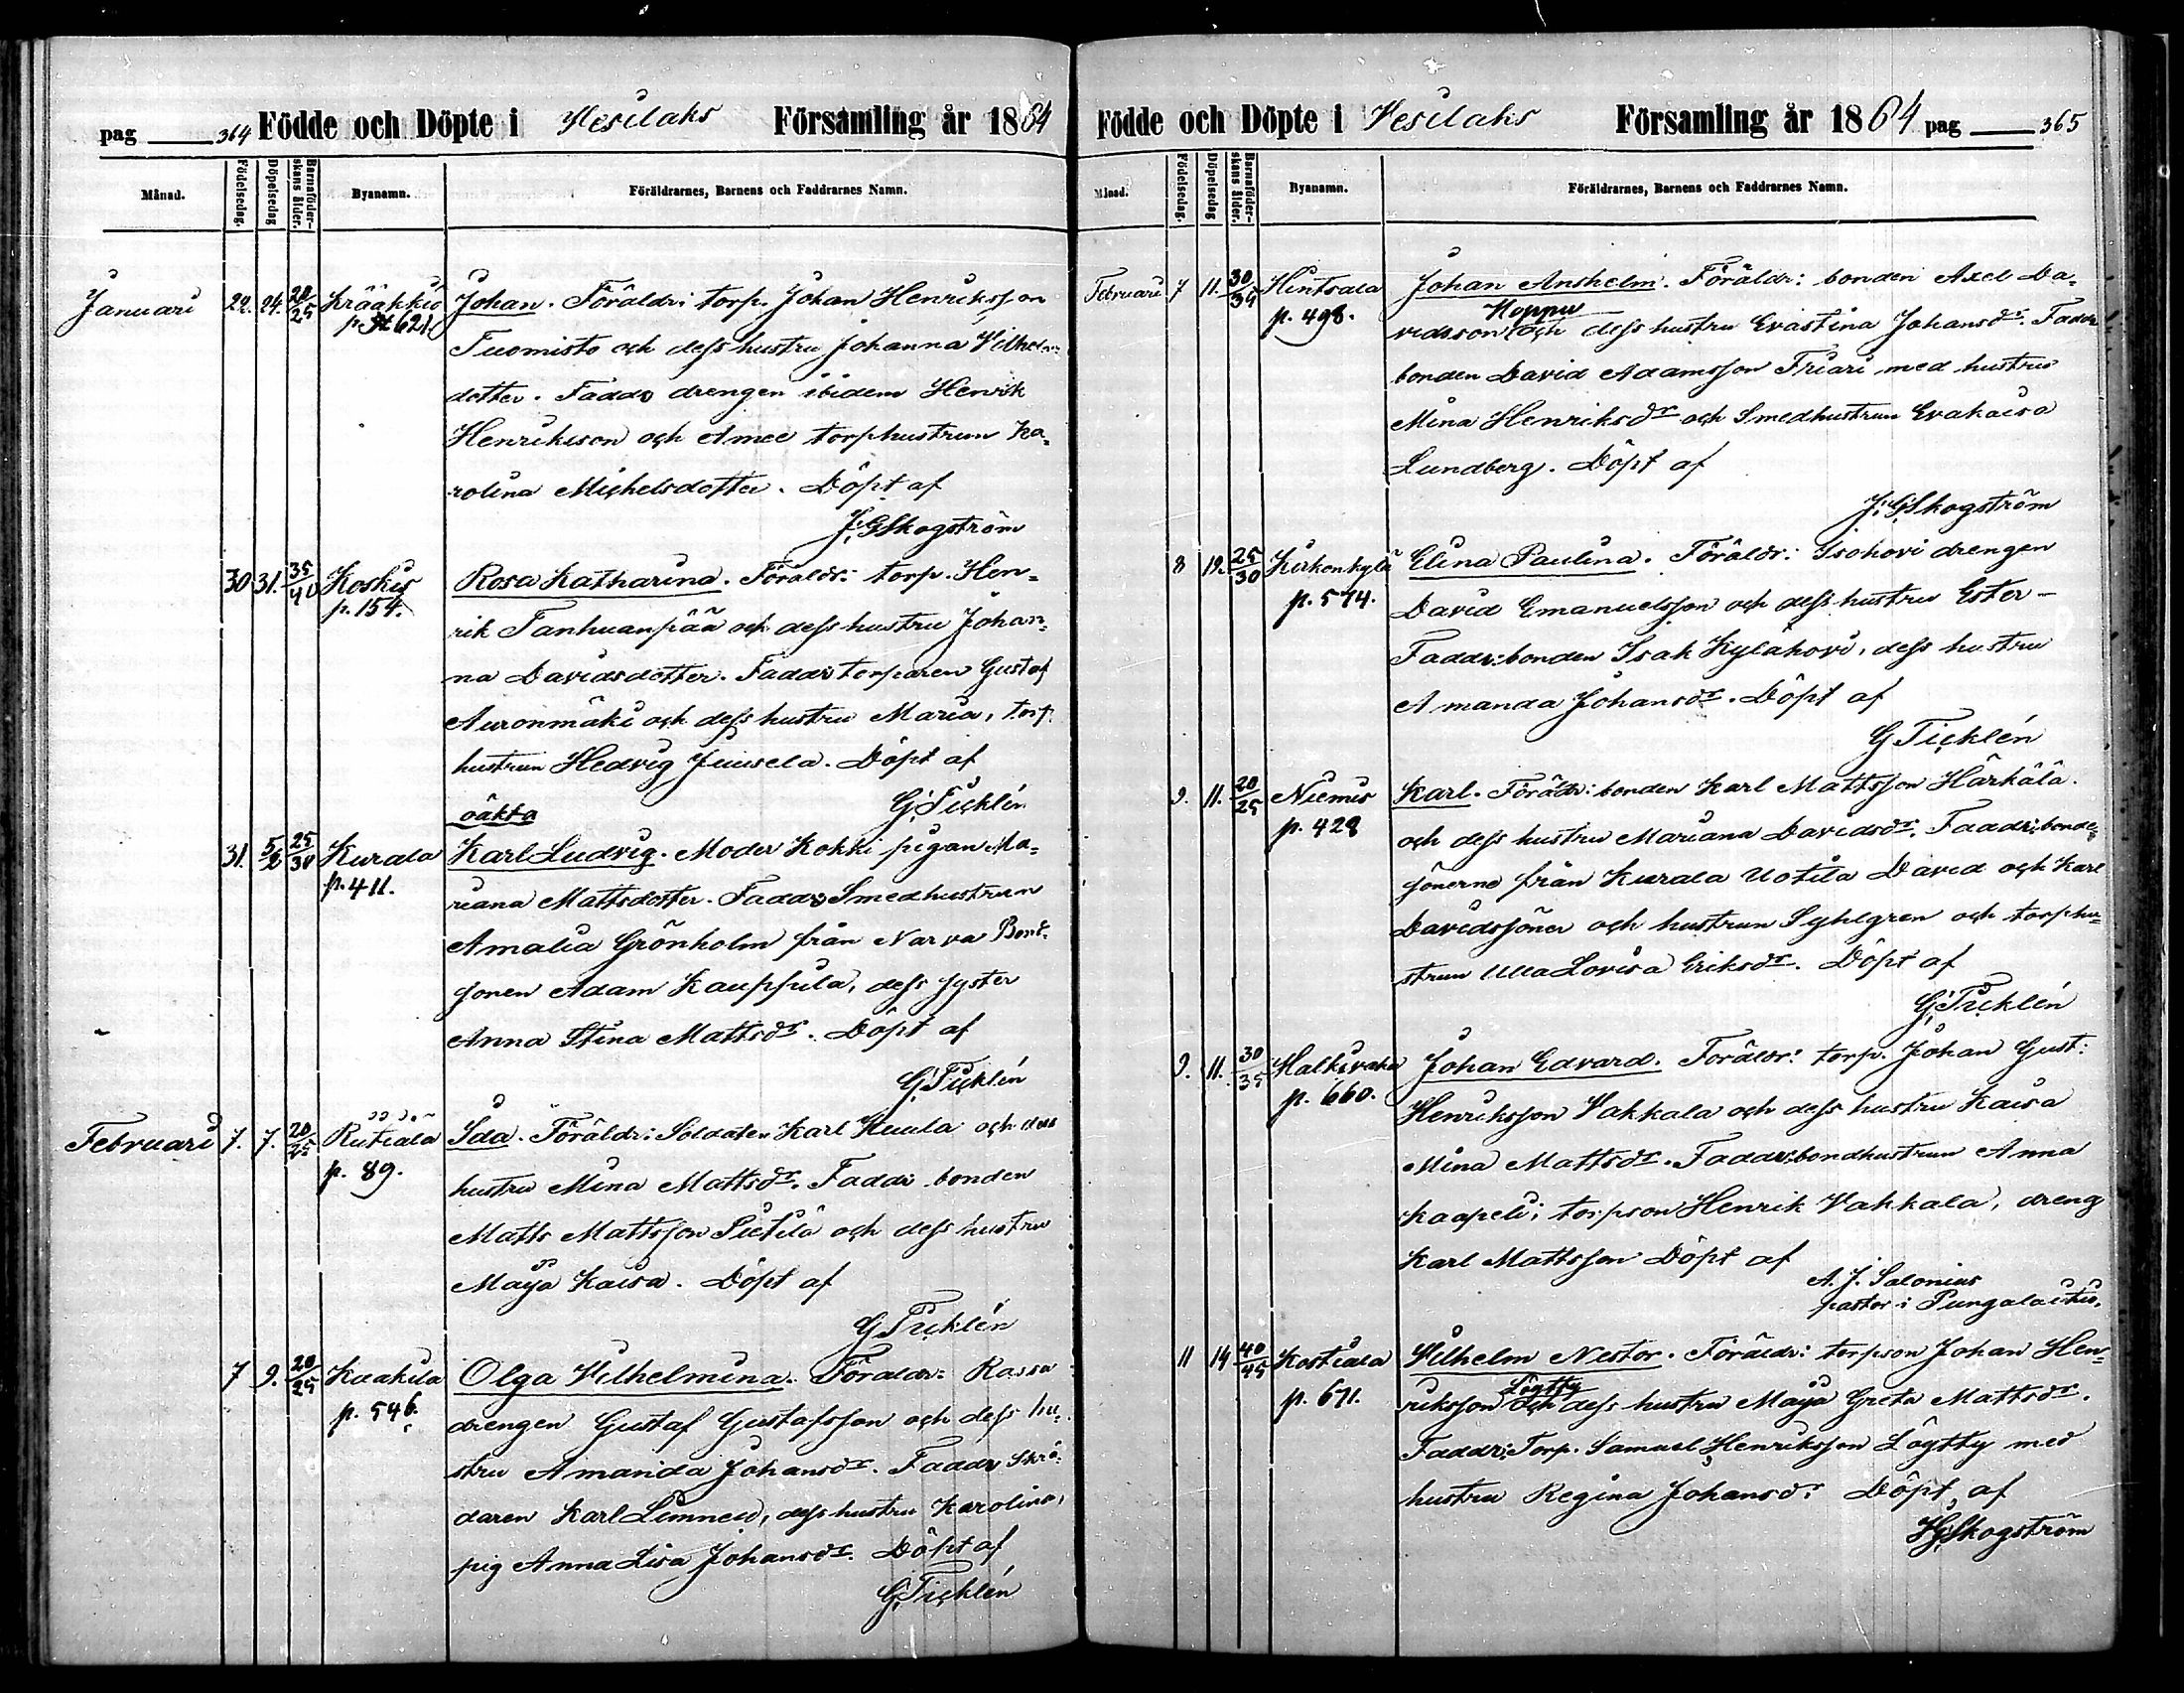 pag 364 Födde och Döpte i Vesilaks Församling år 1864
Månad. Födelsedag. Döpelsedag Barnaföderskans ålder. Byanamn. Föräldrarnes, Barnens och Faddrarnes Namn.
Januari 22. 24. 20/25 Krääkkiö Johan. Föräldr: torp. Johan Henriksson
p. 621. Tuomisto och dess hustru Johanna Vilhelms
dotter. Faddr drengen ibidem Henrik
Henrikson och Amee torphustrun Ka-
rolina Michelsdotter. Döpt af
J. G Skogström
30 31. 35/40 Koskis Rosa Katharina. Föraldr: torp. Hen-
p. 154. rik Tanhuanpää och dess hustru Johan-
na Davidsdotter. Faddr: torparen Gustaf
Auronmäki och dess hustru Maria, torp.
hustrun Hedvig Juusela. Döpt af
G. Ticklén
oäkta
31. 5/2 25/30 Kurala Karl Ludvig. Moder Kokki pigan Ma-
p. 411. riana Mattsdotter. Faddr Smedhustrun
Amalia Grönholm från Narva Bond.
sonen Adam Kauppila, dess syster
Anna Stina Mattsdr. Döpt af
G. Ticklén
Februari 7. 7. 20/25 Rutiala Ida. Föräldr: Soldaten Karl Huula och dess
p. 89. hustru Mina Mattsdr. Faddr: bonden
Matts Mattsson Sutila och dess hustru
Maija Kaisa. Döpt af
G Ticklén
7 9. 20/25 Kuakila Olga Vilhelmina. Föraldr: Rassa
p. 546. drengen Gustaf Gustafsson och dess hu-
stru Amanda Johansdr. Faddr Skrä-
daren Karl Limnell, dess hustru Karolina,
pig Anna Lisa Johansdr. Döpt af
G. Ticklén
Födde och Döpte i Vesilaks Församling år 1864 pag 365
Månad. Födelsedag. Döpelsedag Barnaföderskans ålder. Byanamn. Föräldrarnes, Barnens och Faddrarnes Namn.
Februari 7 11. 30/35 Hintsala Johan Anshelm. Föräldr: bonden Axel Da-
Hoppu
p. 498. vidsson och dess hustru Evastina Johansdr. Faddr
bonden David Adamsson Friari med hustru
Mina Henriksdr och Smedhustrun Evakaisa
Lundberg. Döpt af
J. G Skogström
8 19. 25/30 Kirkonkylä Elina Paulina. Föräldr: Isohovi drengen
p. 574. David Emanuelsson och dess hustru Ester -
Faddr: bonden Isak Kylähovi, dess hustru
Amanda Johansdr. Döpt af
G Ticklén
9. 11. 20/25 Niemis Karl. Föräldr: bonden Karl Mattsson Härkälä.
p. 428 och dess hustru Mariana Davidsdr. Faddr: bonde-
sönerne från Kurala Uotila David och Karl
Davidssöner och hustrun Syhlgren och torphu-
strun Ulla Lovisa Eriksdr. Döpt af
G. Ticklén
9. 11. 30/35 Halkivaha Johan Edvard. Foräldr: torp. Johan Gust:
p. 660. Henriksson Vakkala och dess hustru Kaisa
Mina Mattsdr. Faddr: bondhustrun Anna
Kaapeli, torpson Henrik Vakkala, dreng
Karl Mattsson Döpt af
A. J. Salonius
pastor i Pungalaitio.
11 14 40/45 Kostiala Vilhelm Nestor. Föräldr: torpson Johan Hen-
Lögtty
p. 671. riksson och dess hustru Maija Greta Mattsdr.
Faddr: Torp. Samuel Henriksson Lögtty med
hustru Regina Johansd: Döpt af
J G Skogström